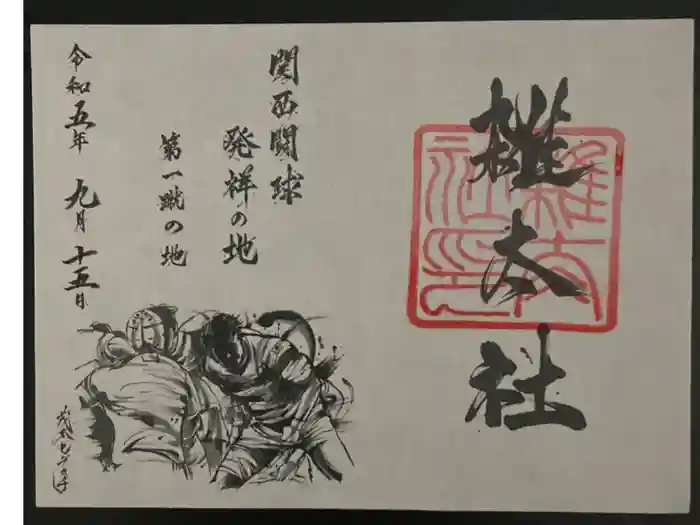 雑太社
関西闘球
発祥の地
第一蹴の地
令和五年 九月 十五日